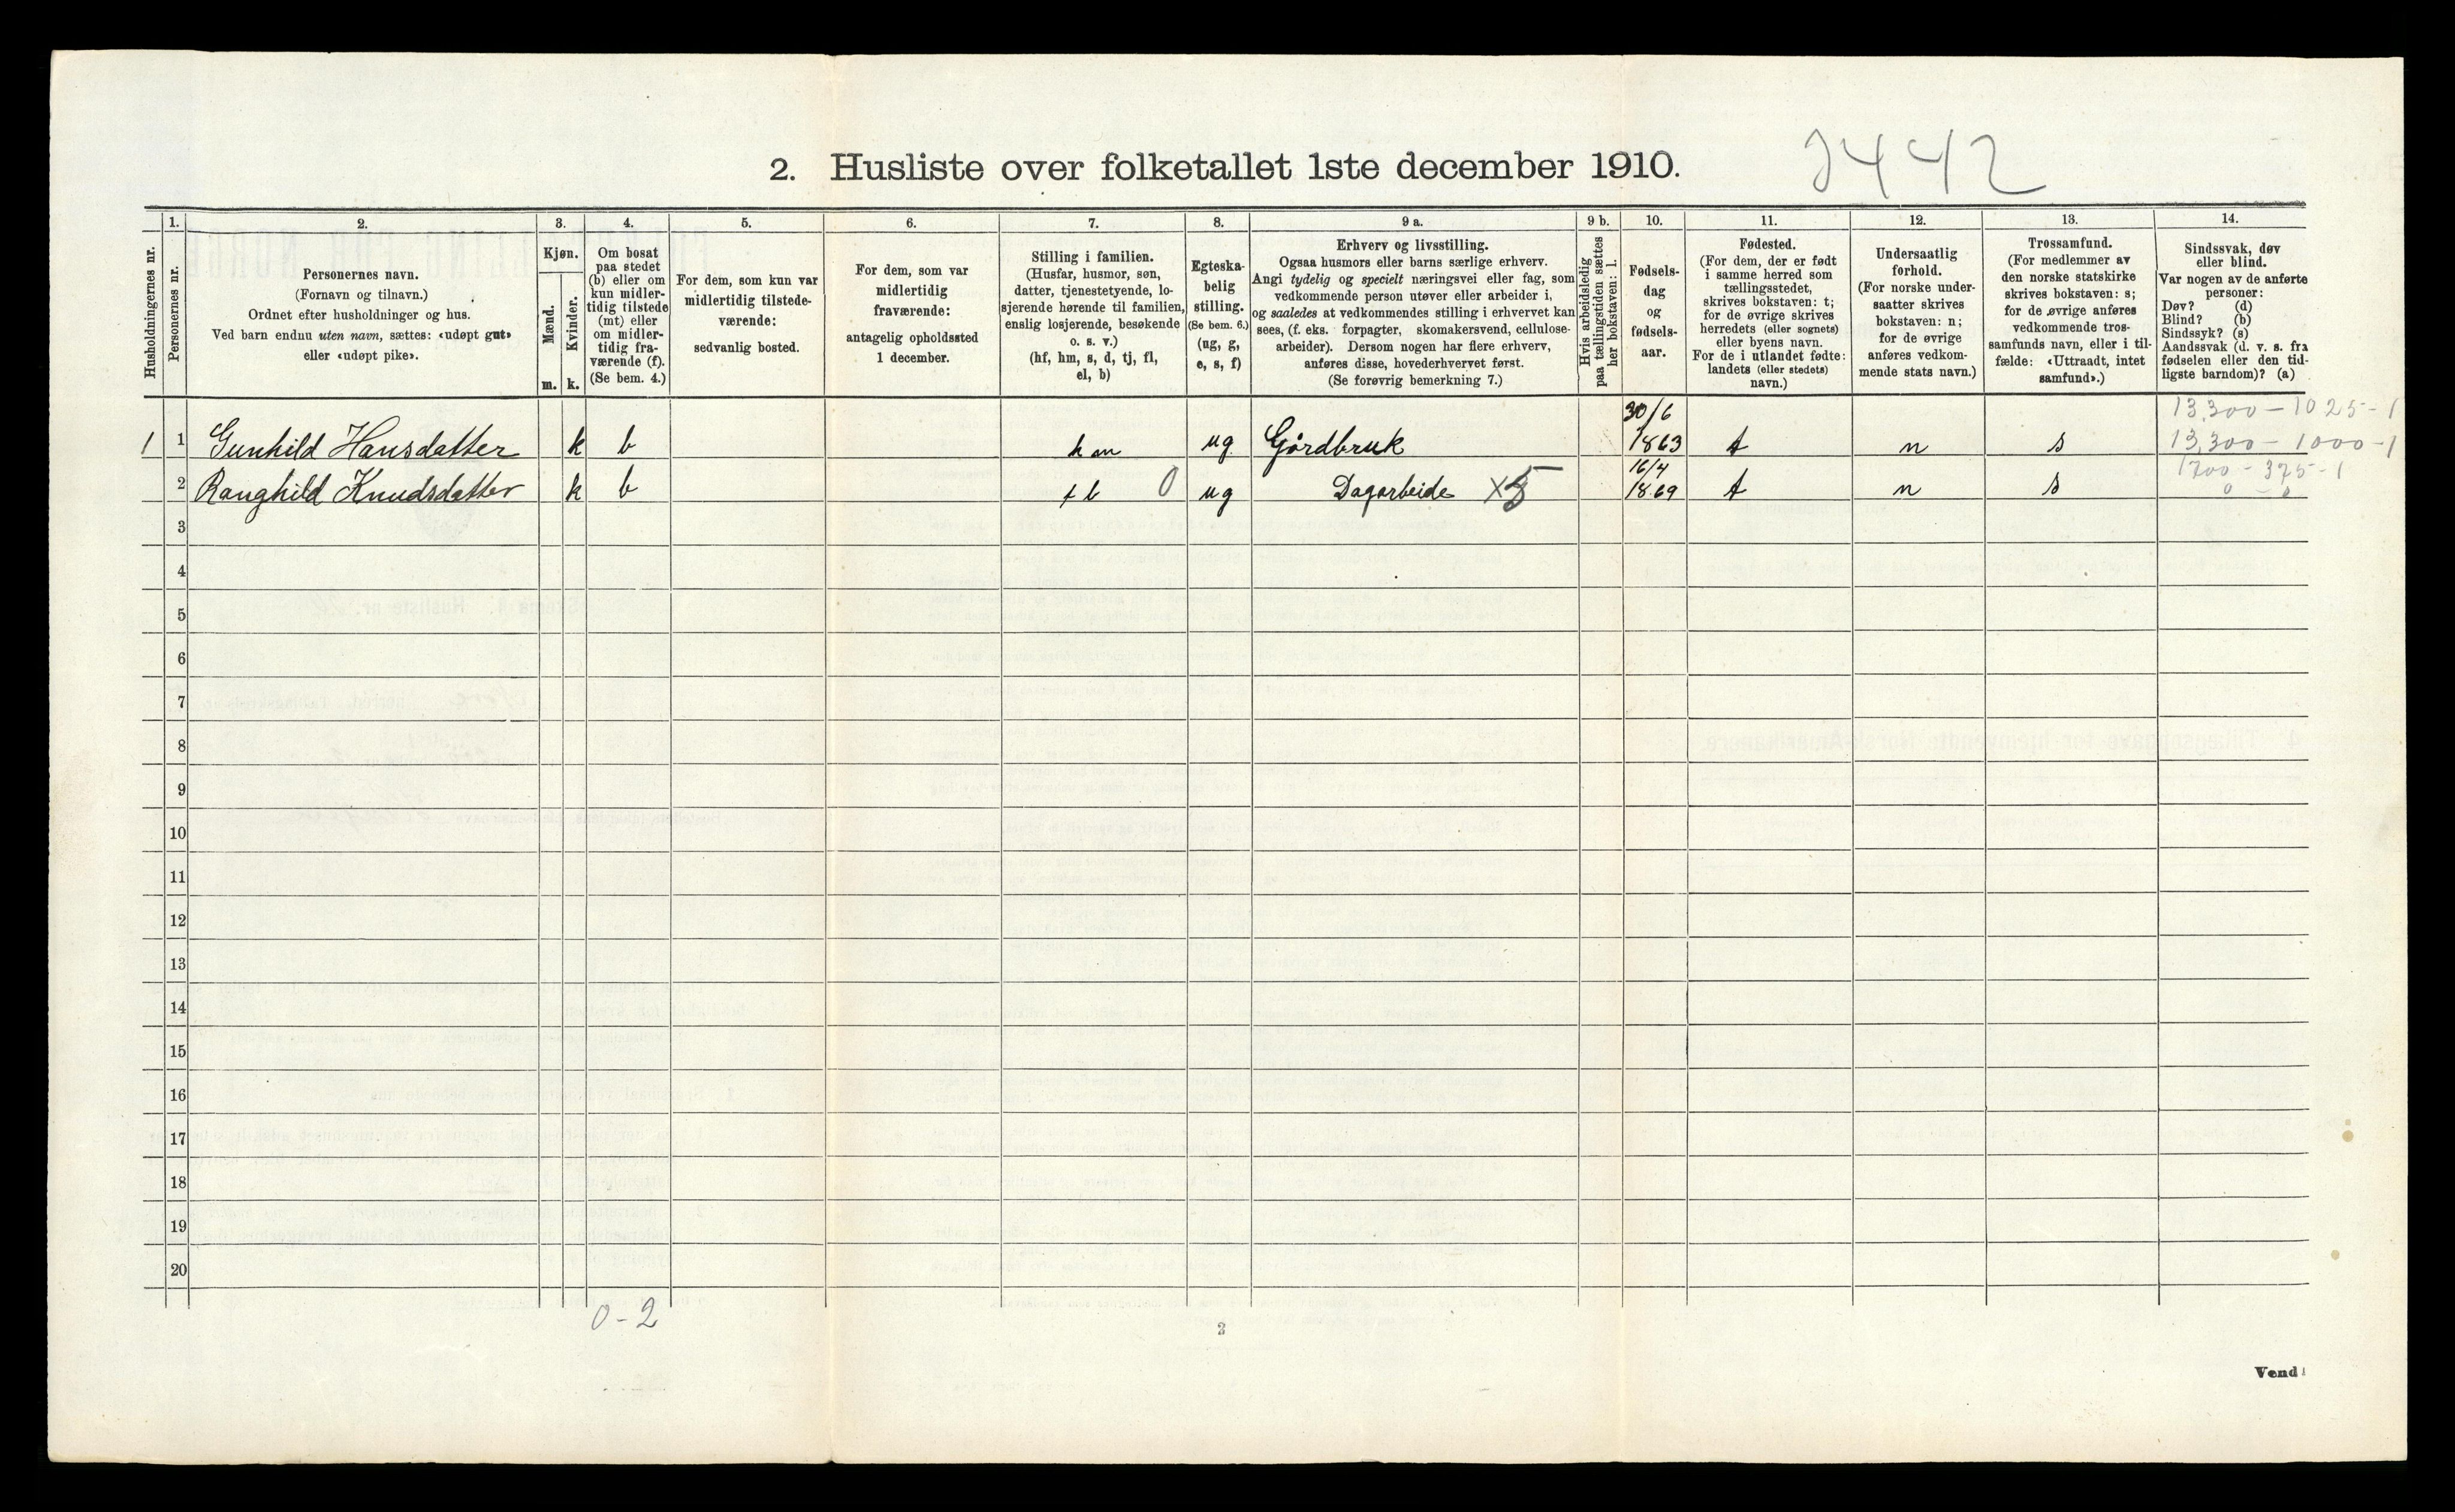 2. Husliste over folketallet 1ste december 1910.
3442
1. 2. 3. 4. 5. 6. 7. 8. 9 a. 9 b. 10. 11. 12. 13. 14.
Husholdningernes nr.
Personernes nr.
Personernes navn.
(Fornavn og tilnavn.)
Ordnet efter husholdninger og hus.
Ved barn endnu uten navn, sættes: «udøpt gut»
eller «udøpt pike».
Kjøn.
Mænd.
Kvinder.
m. k.
Om bosat
paa stedet
(b) eller om
kun midler-
tidig tilstede
(mt) eller
om midler-
tidig fra-
værende (f).
(Se bem. 4.)
For dem, som kun var
midlertidig tilstede-
værende:
sedvanlig bosted.
For dem, som var
midlertidig
fraværende:
antagelig opholdssted
1 december.
Stilling i familien.
(Husfar, husmor, søn,
datter, tjenestetyende, lo-
sjerende hørende til familien,
enslig losjerende, besøkende
o. s. v.)
(hf, hm, s, d, tj, fl,
el, b)
Egteska-
belig
stilling.
(Se bem. 6.)
(ug, g,
e, s, f)
Erhverv og livsstilling.
Ogsaa husmors eller barns særlige erhverv.
Angi tydelig og specielt næringsvei eller fag, som
vedkommende person utøver eller arbeider i,
og saaledes at vedkommendes stilling i erhvervet kan
sees, (f. eks. forpagter, skomakersvend, cellulose-
arbeider). Dersom nogen har flere erhverv,
anføres disse, hovederhvervet først.
(Se forøvrig bemerkning 7.)
Hvis arbeidsledig
paa tællingstiden sættes
her bokstaven: l.
Fødsels-
dag
og
fødsels-
aar.
Fødested.
(For dem, der er født
i samme herred som
tællingsstedet,
skrives bokstaven: t;
for de øvrige skrives
herredets (eller sognets)
eller byens navn.
For de i utlandet fødte:
landets (eller stedets)
navn.)
Undersaatlig
forhold.
(For norske under-
saatter skrives
bokstaven: n;
for de øvrige
anføres vedkom-
mende stats navn.)
Trossamfund.
(For medlemmer av
den norske statskirke
skrives bokstaven: s;
for de øvrige anføres
vedkommende tros-
samfunds navn, eller i til-
fælde: «Uttraadt, intet
samfund».)
Sindssvak, døv
eller blind.
Var nogen av de anførte
personer:
Døv? (d)
Blind? (b)
Sindssyk? (s)
Aandssvak (d. v. s. fra
fødselen eller den tid-
ligste barndom)? (a)
13,300 - 1025 - 1
1 1 Gunhild Hansdatter k b hm ug Gårdbruk 30/6 1863 t n s 13,300 - 1000 - 1
1700 - 375 - 1
2 Ranghild Knudsdatter k b fl 0 ug Dagarbeide X5 16/4 1869 t n s 0 - 0
3
4
5
6
7
8
9
10
11
12
13
14
15
16
17
18
19
20
0 - 2
2
Vend